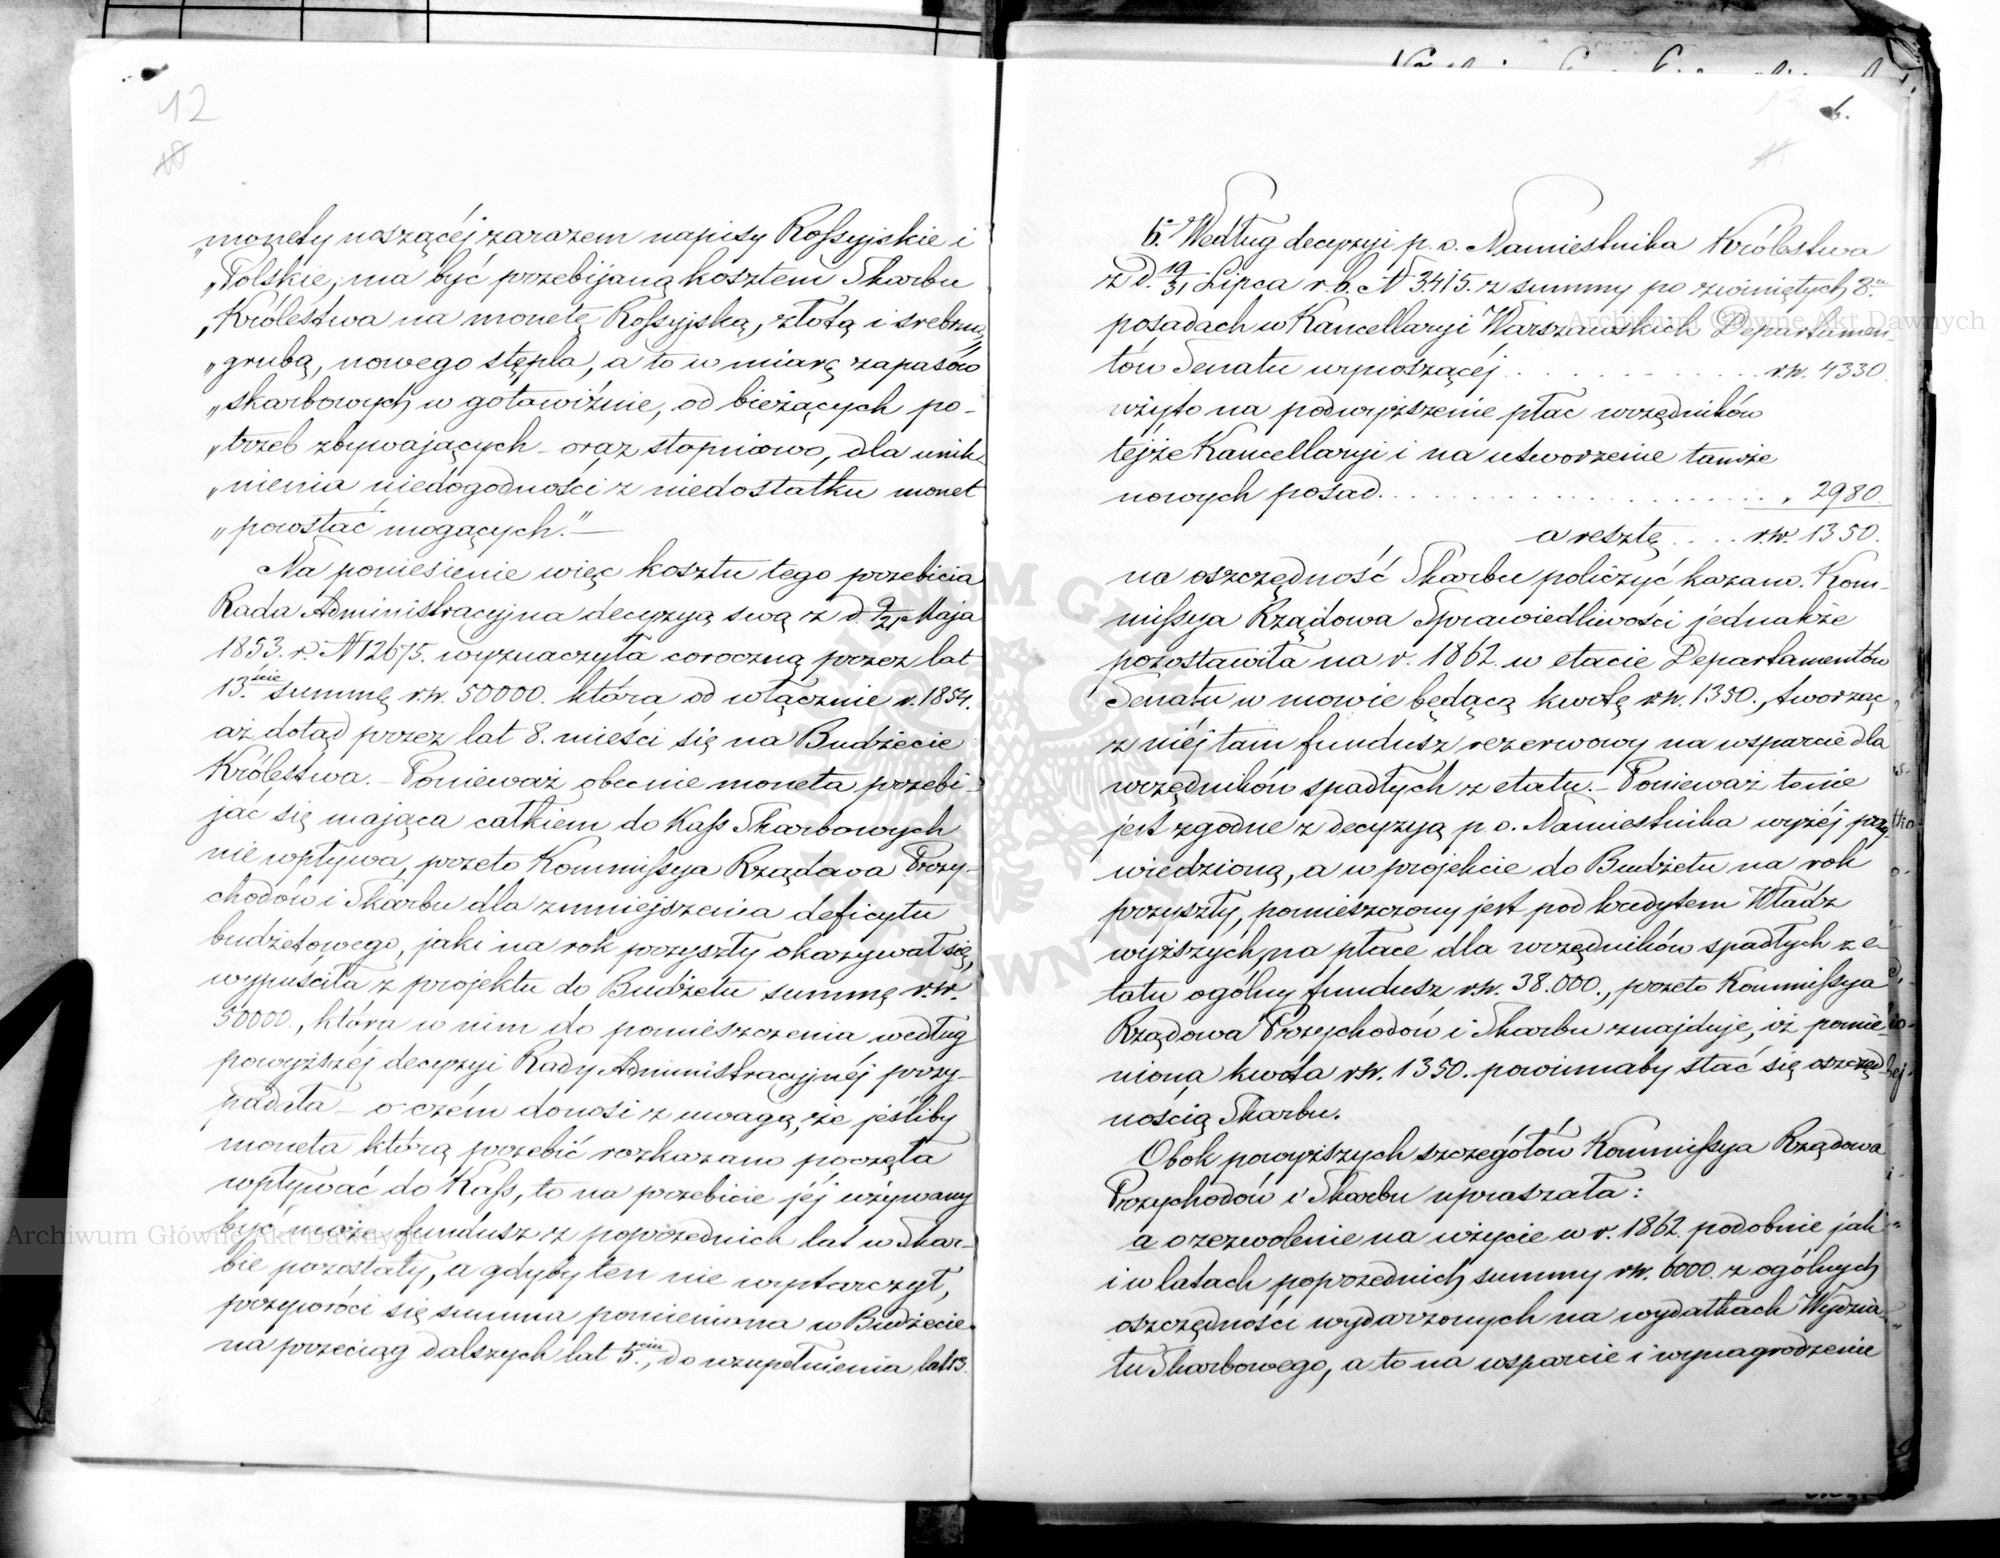 12
„monety noszącéj zarazem napisy Rossyjskie i
„Polskie, ma być przebijaną kosztem Skarbu
„Królestwa na monetę Rossyjską, złotą i srebrną,
„grubą, nowego stępla, a to w miarę zapasów
„skarbowych w gotowiźnie, od bieżących po-
„trzeb zbywających – oraz stopniowo, dla unik-
„nienia niedogodności z niedostatku monet
„powstać mogących.” —
Na poniesienie więc kosztu tego przebicia
Rada Administracyjna decyzyą swą z d. 9/21 Maja
1853. r. N 12675. wyznaczyła coroczną przez lat
13.ście summę r.sr. 50000. która od włącznie r. 1854.
aż dotąd przez lat 8. mieści się na Budżecie
Królestwa. – Ponieważ obecnie moneta przebi-
jać się mająca całkiem do Kass Skarbowych
nie wpływa, przeto Kommissya Rządowa Przy-
chodów i Skarbu dla zmniejszenia deficytu
budżetowego, jaki na rok przyszły okazywał się,
wypuściła z projektu do Budżetu summę r.sr.
50000., która w nim do pomieszczenia według
powyższéj decyzyi Rady Administracyjnéj przy-
padała – o czém donosi z uwagą, że jeśliby
moneta którą przebić rozkazano poczęła
wpływać do Kass, to na przebicie jéj używany
być może fundusz z poprzednich lat w Skar-
bie pozostały, a gdyby ten nie wystarczył,
przywróci się summa pomieniona w Budżecie
na przeciąg dalszych lat 5.ciu, do uzupełnienia lat 13.
6.
6. Według decyzyi p. o. Namiestnika Królestwa
z d. 19/31 Lipca r. b. N 3415. z summy po zwiniętych 8.u
posadach w Kancellaryi Warszawskich Departamen-
tów Senatu wynoszącéj . . . . . . . . . . r.sr. 4330
użyto na podwyższenie płac urzędników
tejże Kancellaryi i na utworzenie tamże
nowych posad. . . . . . . . . . . . . . . . . . „ 2980.
a resztę . . . . r.sr. 1350.
na oszczędność Skarbu policzyć kazano. Kom-
missya Rządowa Sprawiedliwości jednakże
pozostawiła na r. 1862. w etacie Departamentów
Senatu w mowie będącą kwotę r.sr. 1350., tworząc
z niéj tam fundusz rezerwowy na wsparcie dla
urzędników spadłych z etatu. – Ponieważ to nie
jest zgodne z decyzyą p. o. Namiestnika wyżéj przy-
wiedzioną, a w projekcie do Budżetu na rok
przyszły, pomieszczony jest pod kredytem Władz
wyższych, na płace dla urzędników spadłych z e-
tatu ogólny fundusz r.sr. 38.000., przeto Kommissya
Rządowa Przychodów i Skarbu znajduje, iż pomie-
niona kwota r.sr. 1350. powinnaby stać się oszczęd-
nością Skarbu.
Obok powyższych szczegółów Kommissya Rządowa
Przychodów i Skarbu upraszała:
a o zezwolenie na użycie w r. 1862. podobnie jak
i w latach poprzednich, summy r.sr. 6000. z ogólnych
oszczędności wydarzonych na wydatkach Wydzia-
łu Skarbowego, a to na wsparcie i wynagrodzenie
Archiwum Główne Akt Dawnych
Archiwum Główne Akt Dawnych